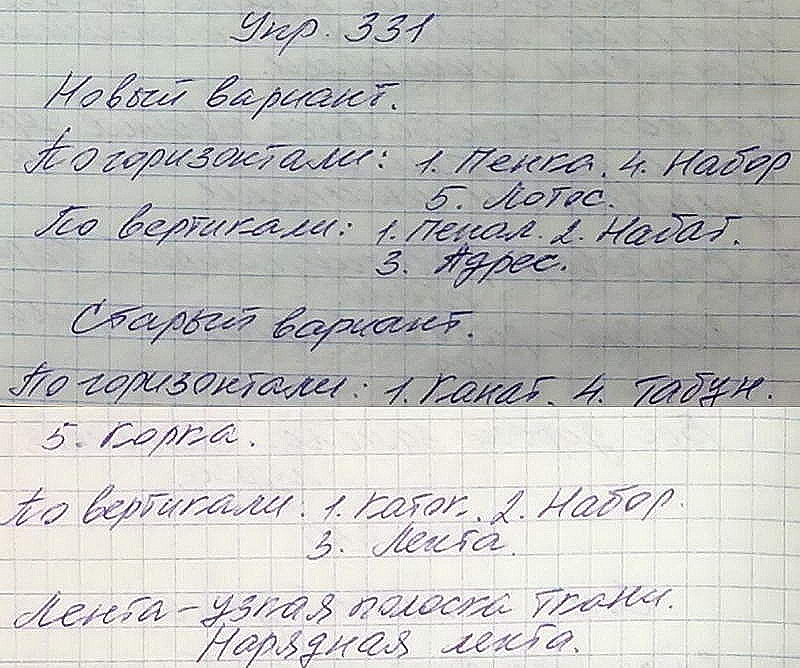 Упр. 331
Новый вариант.
По горизонтали: 1. Пенка. 4. Набор
5. Лотос.
По вертикали: 1. Пенал. 2. Набат.
3. Адрес.
Старый вариант.
По горизонтали: 1. Канат. 4. Табун.
5. Корка.
По вертикали: 1. Каток. 2. Набор.
3. Лента.
Лента - узкая полоска ткани.
Нарядная лента.